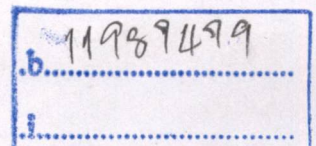 .b 11989499
i